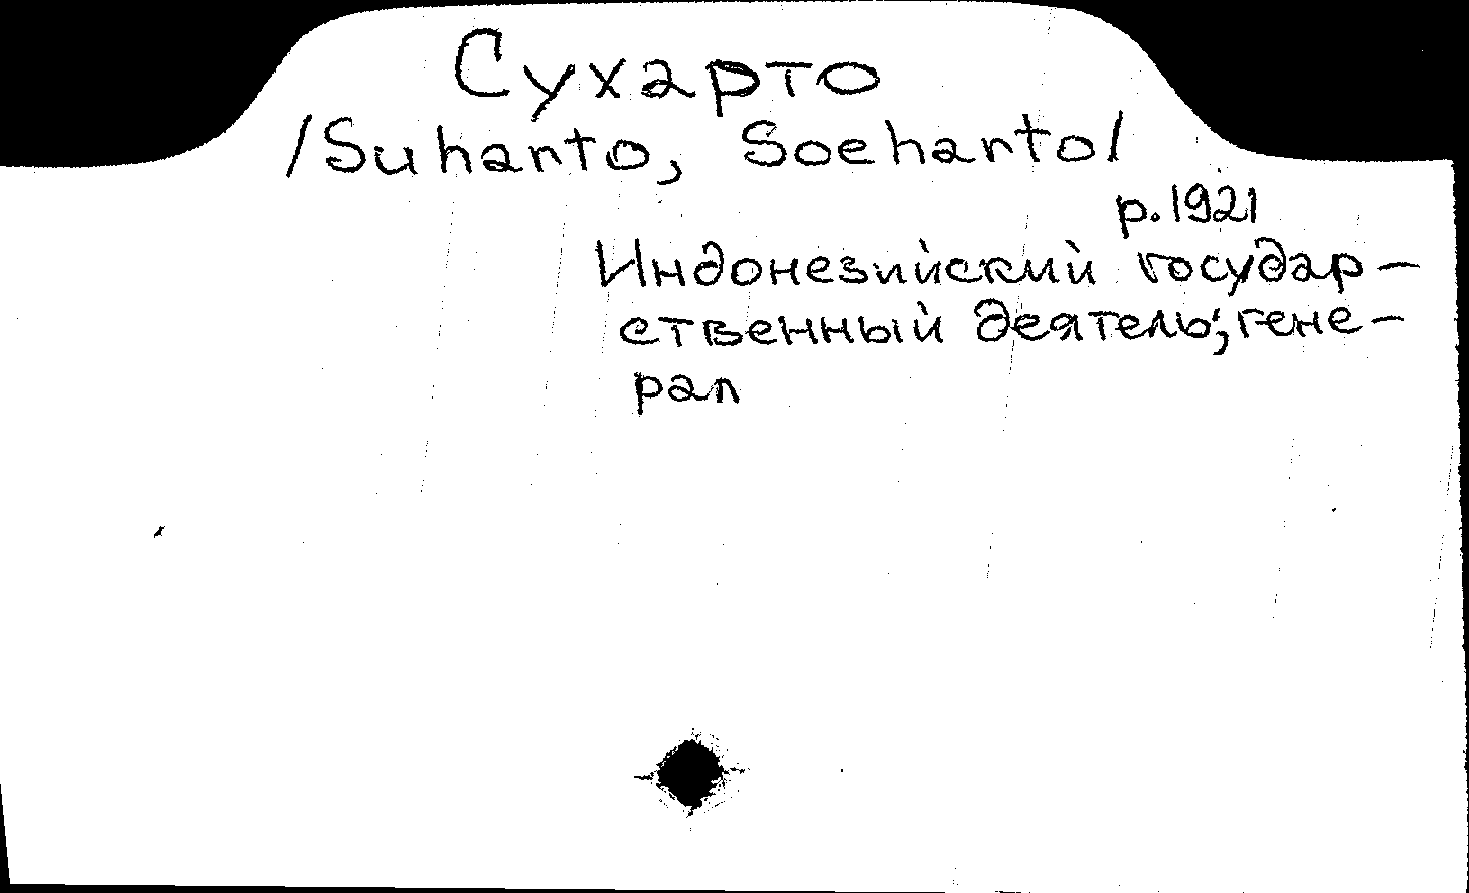 Сухарто
/Suharto, Soeharto/
р.1921
Индонезийский государ-
ственный деятель, гене-
рал